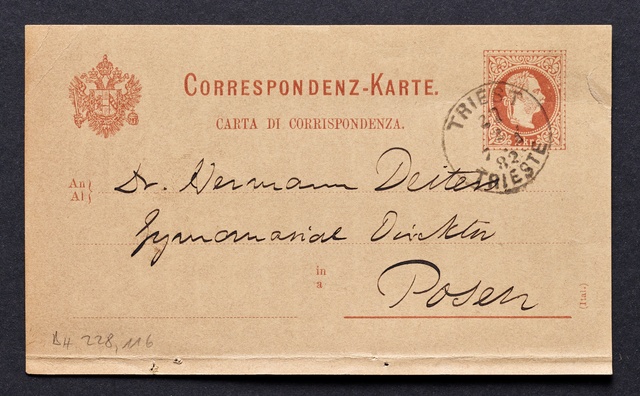 CORRESPONDENZ-KARTE.
CARTA DI CORRISPONDENZA.
TRIEST
27
82
TRIESTE
2 kr
An
Al
Dr. Hermann Deiters
Gymnasial Direktor
in
a
Posen
(Ital.)
B4 228, 116